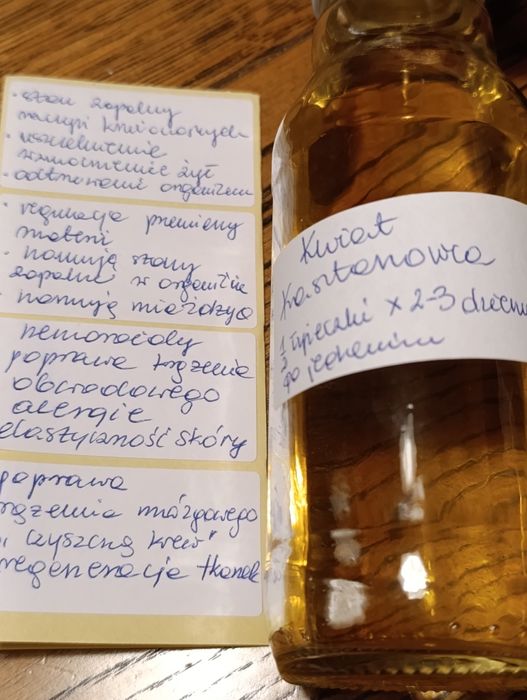 • stan zapalny
naczyń krwionośnych
• uszczelnienie
wzmocnienie żył
• odtruwanie organizm
• regulacja przemiany
materii
• hamują stany
zapalne w organizmie
• hamują miażdżyc
hemoroidy
poprawa krążenia
obwodowego
alergie
elastyczność skóry
poprawa
krążenia mózgowego
„czyszczą krew"
regeneracja tkanek
Kwiat
Kasztanowca
½ łyżeczki x 2-3 dziennie
po jedzeniu